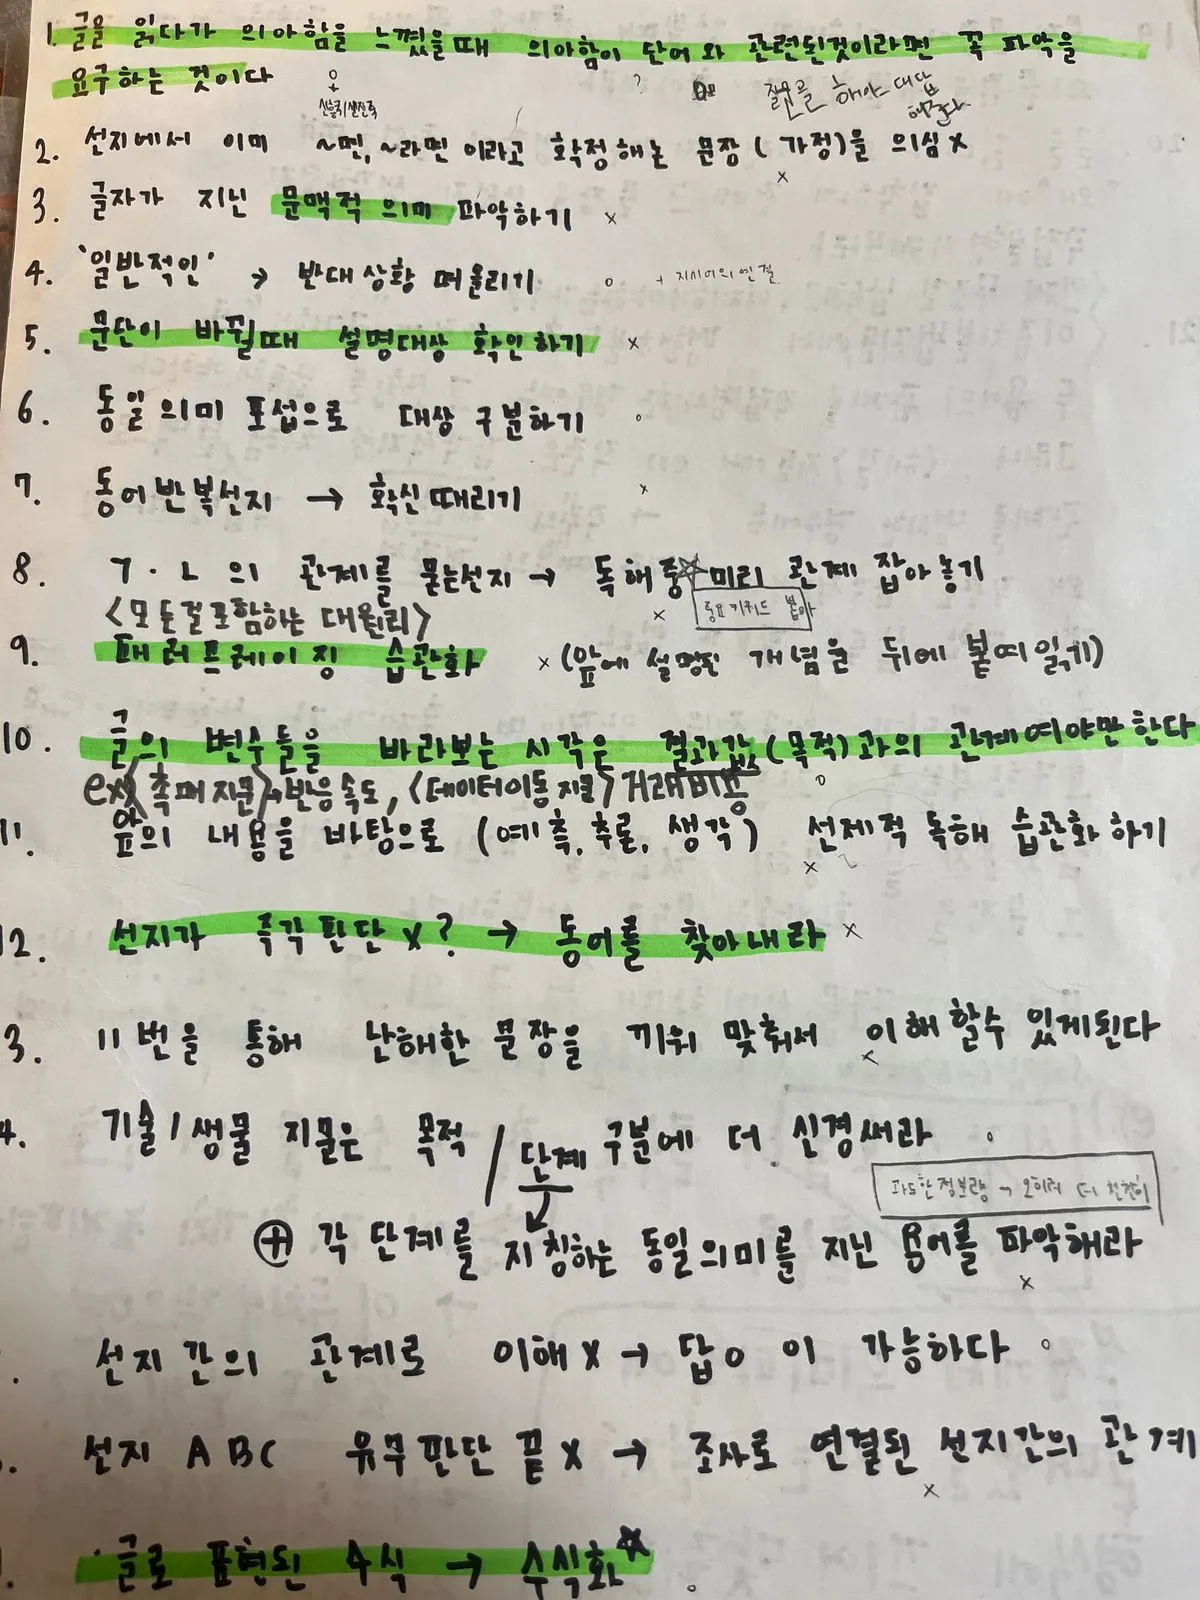 1. 글을 읽다가 의아함을 느꼈을때 의아함이 단어와 관련된것이라면 꼭 파악을
요구하는 것이다
? 질문을 해야 대답
해준다
2. 선지에서 이미 ~면, ~라면 이라고 확정해놓는 문장 (가정)을 의심 x
x
3. 글자가 지닌 문맥적 의미 파악하기 x
4. '일반적인' → 반대상황 떠올리기 o + 지시어의 연결
5. 문단이 바뀔때 설명대상 확인하기 x
6. 동일의미 포섭으로 대상 구분하기 o
7. 동어반복선지 → 확신때리기 x
8. ㄱ·ㄴ의 관계를 묻는선지 → 독해중 미리 관계 잡아놓기
x 중요키워드
<모든걸포함하는 대원리>
9. 패러프레이징 습관화 x (앞에 설명된 개념을 뒤에 붙여읽기)
10. 글의 변수들을 바라보는 시각은 결과값(목적)과의 관계여야만한다
ex) <촉매지문> 반응속도, <데이터이동지문> 거래비용 o
11. 앞의 내용을 바탕으로 (예측, 추론, 생각) 선제적 독해 습관화하기
x
12. 선지가 즉각판단x? → 동어를 찾아내라 x
3. 11번을 통해 난해한 문장을 끼워 맞춰서 이해할수 있게된다
x
4. 기술/생물 지문은 목적/단계 구분에 더 신경써라 o
과도한정보량 → 오히려 더 천천히
⊕ 각 단계를 지칭하는 동일의미를 지닌 용어를 파악해라
x
. 선지간의 관계로 이해x → 답o 이 가능하다 o
선지 ABC 유무판단 끝x → 조사로 연결된 선지간의 관계
x
. 글로 표현된 수식 → 수식화 ☆